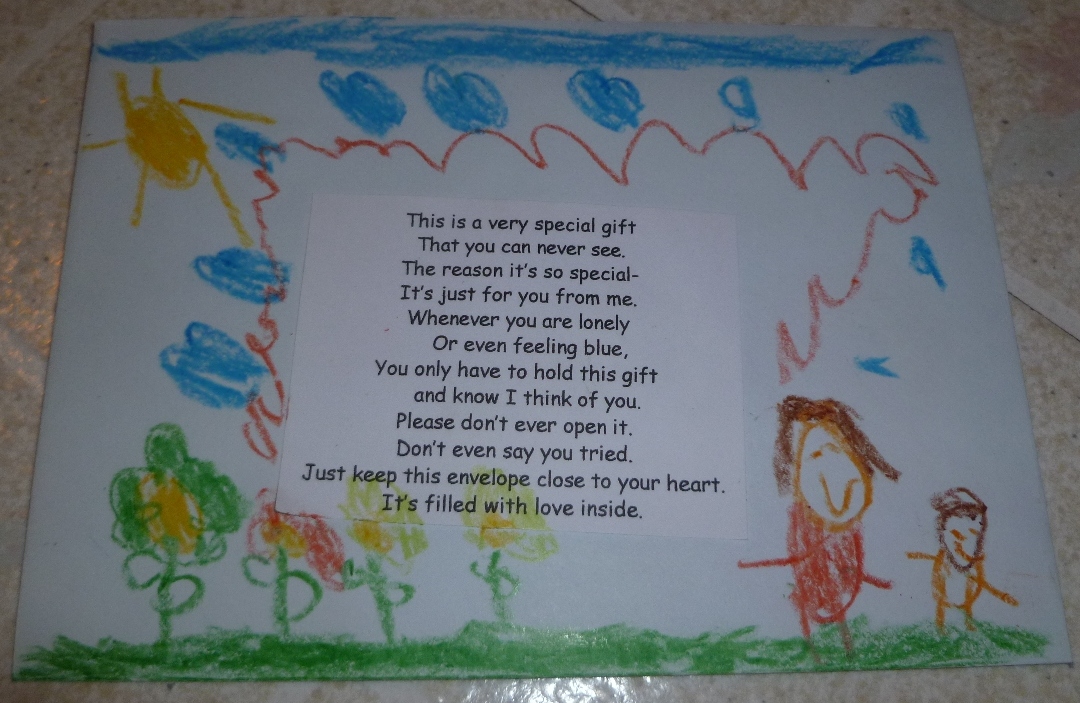 This is a very special gift
That you can never see.
The reason it's so special-
It's just for you from me.
Whenever you are lonely
Or even feeling blue,
You only have to hold this gift
and know I think of you.
Please don't ever open it.
Don't even say you tried.
Just keep this envelope close to your heart.
It's filled with love inside.